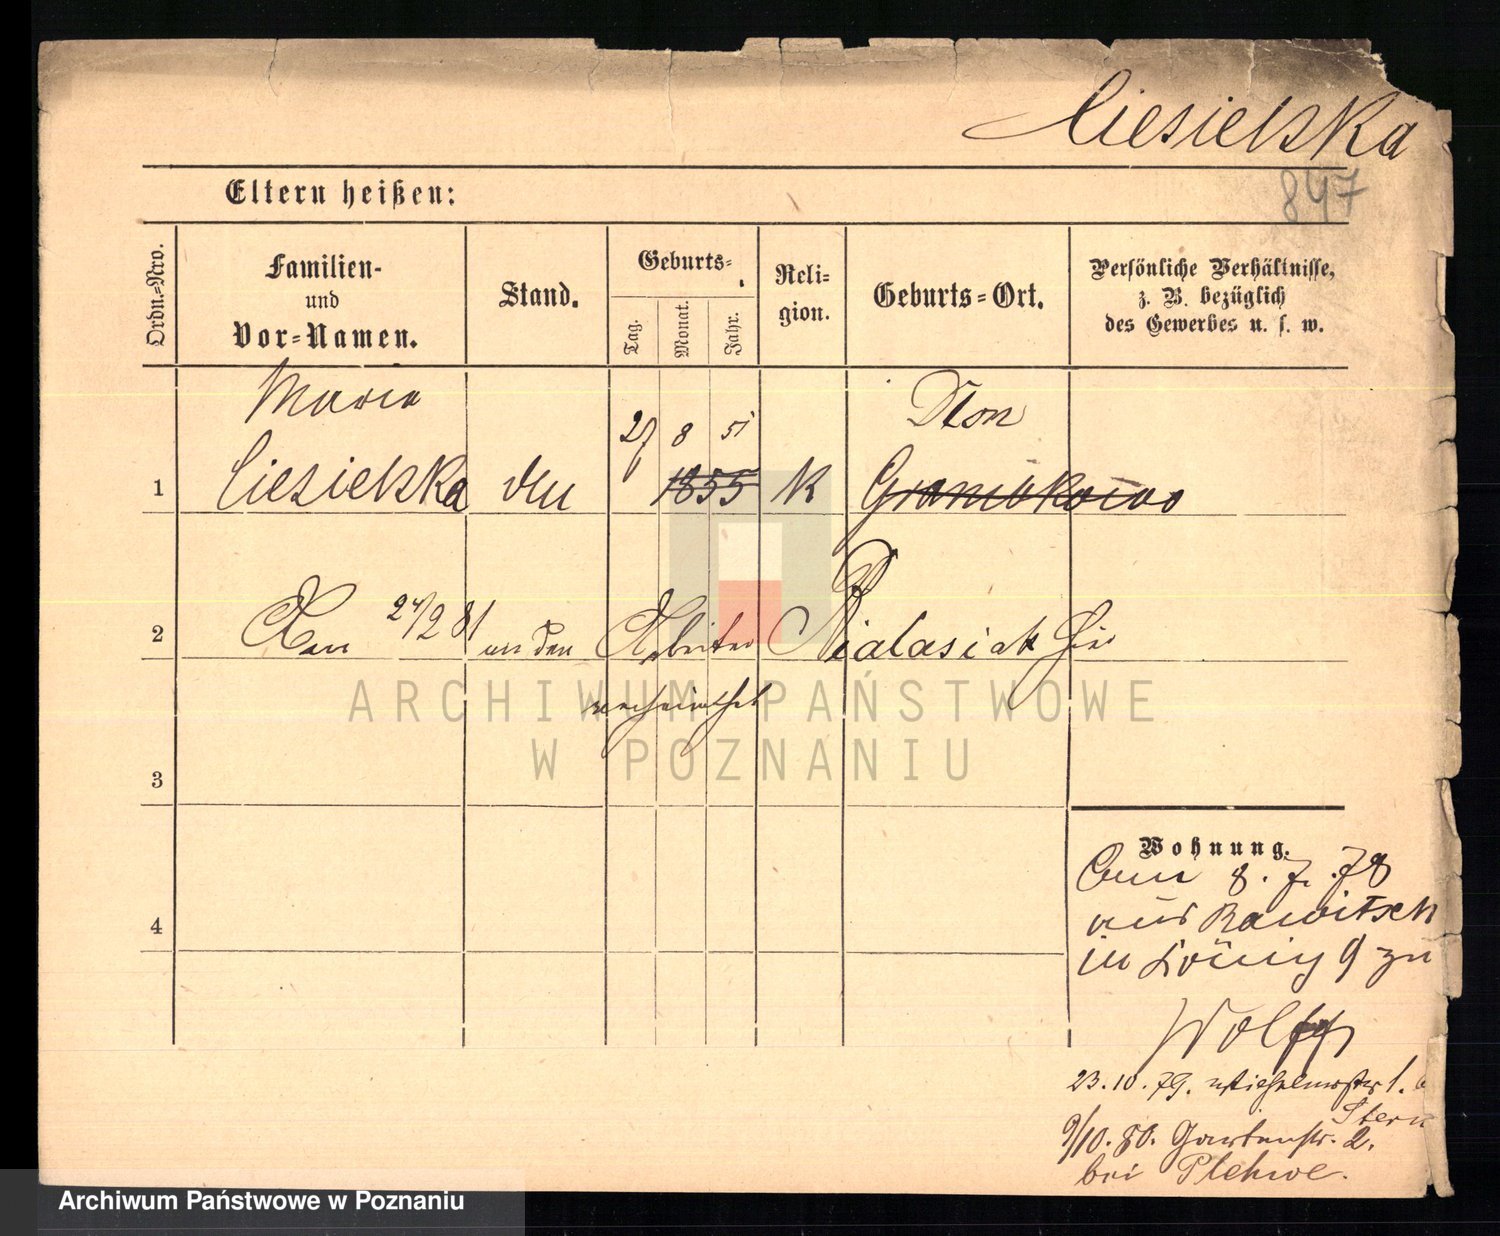 Ciesielska
847
Eltern heißen:
Ordn.-Nro.
Familien-
und
Vor-Namen.
Stand.
Geburts-
Tag.
Monat.
Jahr.
Reli-
gion.
Geburts-Ort.
Persönliche Verhältnisse,
z. B. bezüglich
des Gewerbes u. s. w.
Maria
27 8 51
1 Ciesielska 1855 K
2 Am 24/2 81 an den Arbeiter Bialasiak hier
verheirathet
3
4
Wohnung.
8. 7. 78
aus Rawitsch
in König 9 zu
Wolff
23.10.79. Wilhelmstr 1.
Stern
9/10.80. Gartenstr. 2.
bei Plehwe.
ARCHIWUM PAŃSTWOWE
W POZNANIU
Archiwum Państwowe w Poznaniu